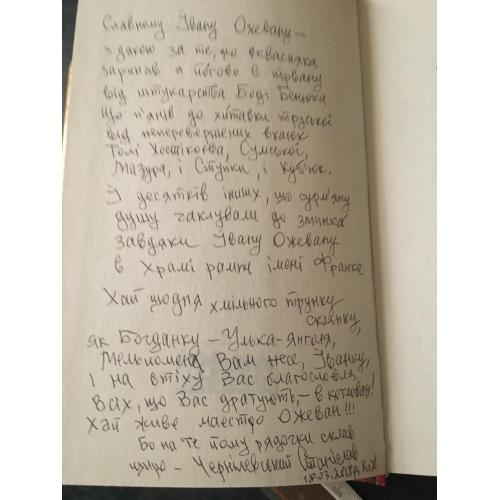 Славному Івану Ожевану –
з дякою за те, що
заринав я
від штукарства Боді Бенюка
Що п'янів до
від неперевершених
Толі Хостікоєва, Сумської,
Мазура, і Ступки, і Кубюк.
І десятків інших, що сурм'яну
душу чаклували до
завдяки Івану Ожевану
в Храмі рампи імені Франка
Хай щодня хмільного трунку
склянку,
як Богданку – Улька-янголя,
Мельпомена Вам несе, Іванку,
і на втіху Вас благословля
Всіх, що Вас дратують, – в котлован!
Хай живе маестро Ожеван!!!
Бо на те йому рядочки склав
Чернілевський Станіслав
18.03.2018